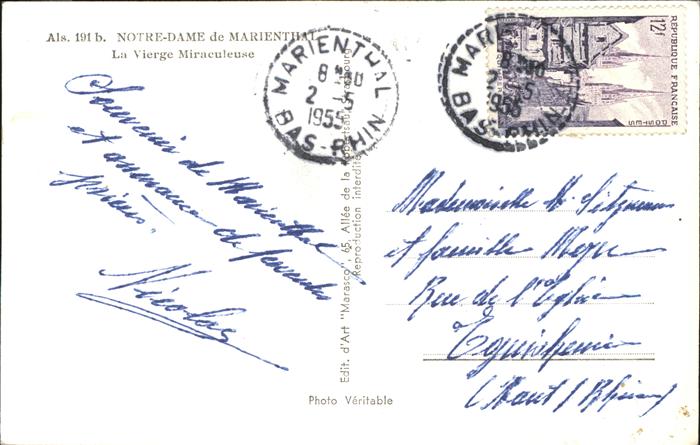 Als. 191 b. NOTRE-DAME de MARIENTHAL
La Vierge Miraculeuse
MARIENTHAL
8
2 - 5
1955
BAS-RHIN
MARIEN
8
2 - 5
1955
BAS-RHIN
12F
RÉPUBLIQUE FRANÇAISE
POSTES
Souvenir de Marienthal
et assurance de ferventes
prières.
Nicolas
Edit. d'Art "Marasco", 65, Allée de la Robertsau, Strasbourg
Reproduction interdite
Photo Véritable
Mademoiselle
et famille Meyer
Rue de l'Eglise
Eguisheim
(Haut/Rhin)